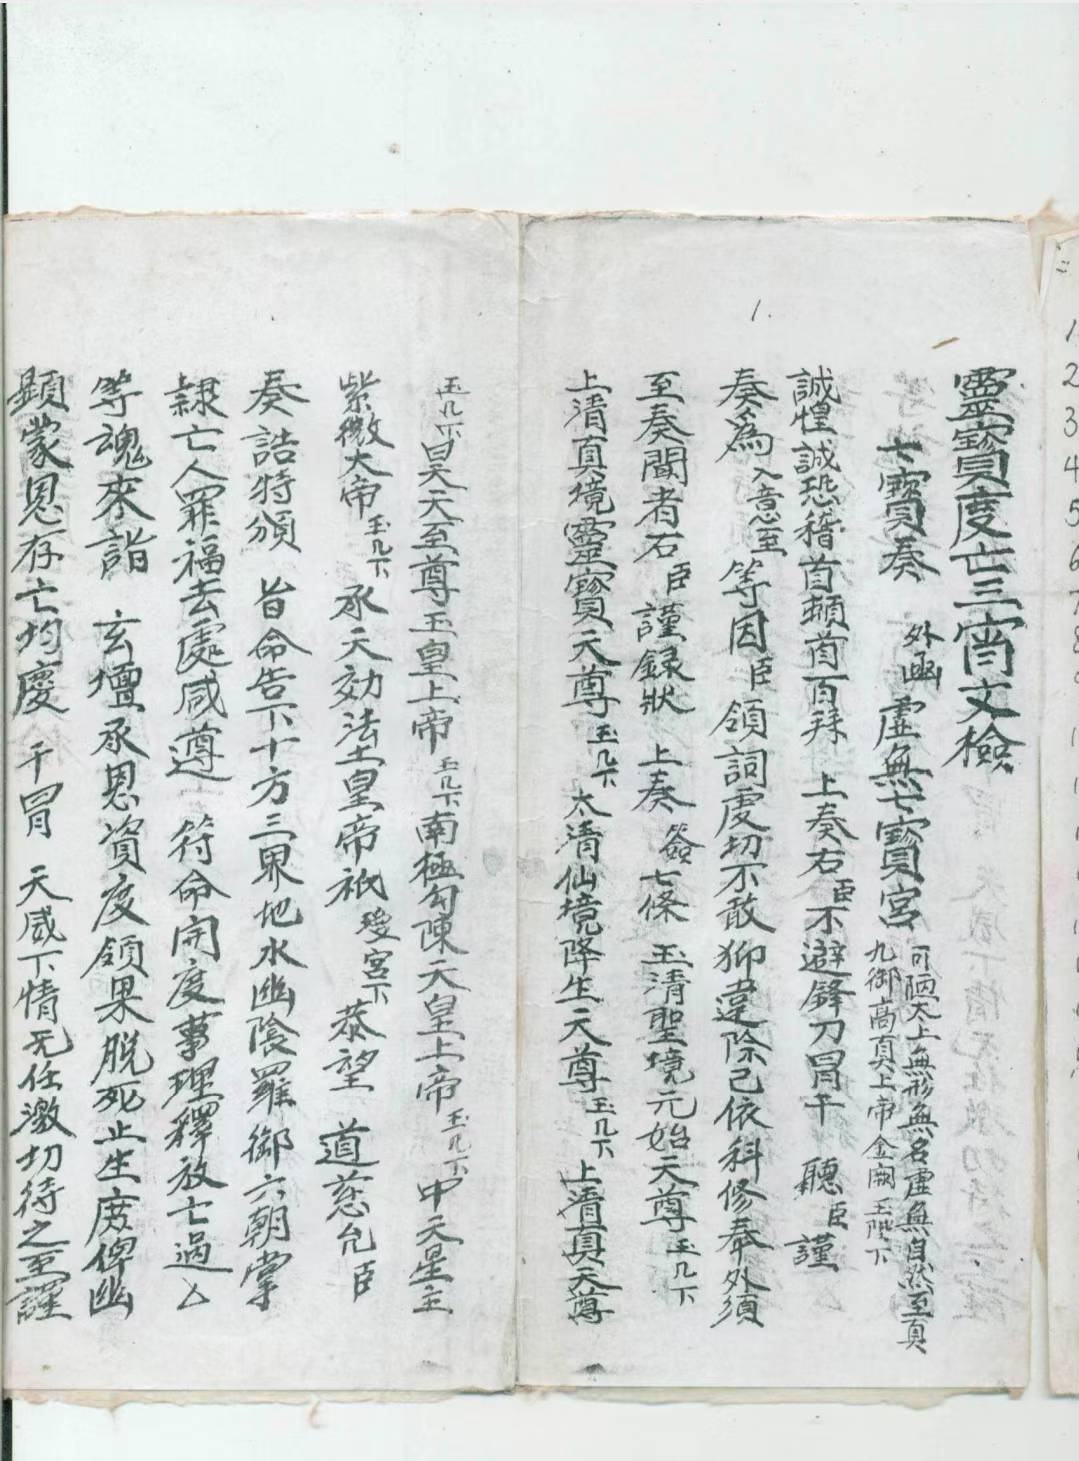 靈寶度亡三宵文檢
七寶奏 外函 虛無七寶宮 可陋太上無形無名虛無自然至真
九御高真上帝金闕玉陛下
誠惶誠恐稽首頓首百拜 上奏右臣不避鋒刀冒干 聽臣謹
奏為 入意至 等因臣領詞虔切不敢抑違除已依科修奉外須
至奏聞者右臣謹錄狀 上奏 簽七條 玉清聖境元始天尊玉几下
上清真境靈寶天尊玉几下太清仙境降生天尊玉几下上清真天尊
玉几下昊天至尊玉皇上帝玉几下南極勾陳天皇上帝玉几下中天星主
紫微大帝玉几下承天効法土皇帝祇 宮下恭望 道慈允臣
奏誥特頒 旨命告下十方三界地水幽陰羅御六朝掌
隸亡人罪福去處咸遵 符命開度事理釋放亡過厶
等魂來詣 玄壇承恩資度領果脫死止生庻俾幽
顕蒙恩存亡均慶 干冐 天威下情无任激切待之至謹
1.
1
2
3
4
5
6
7
8